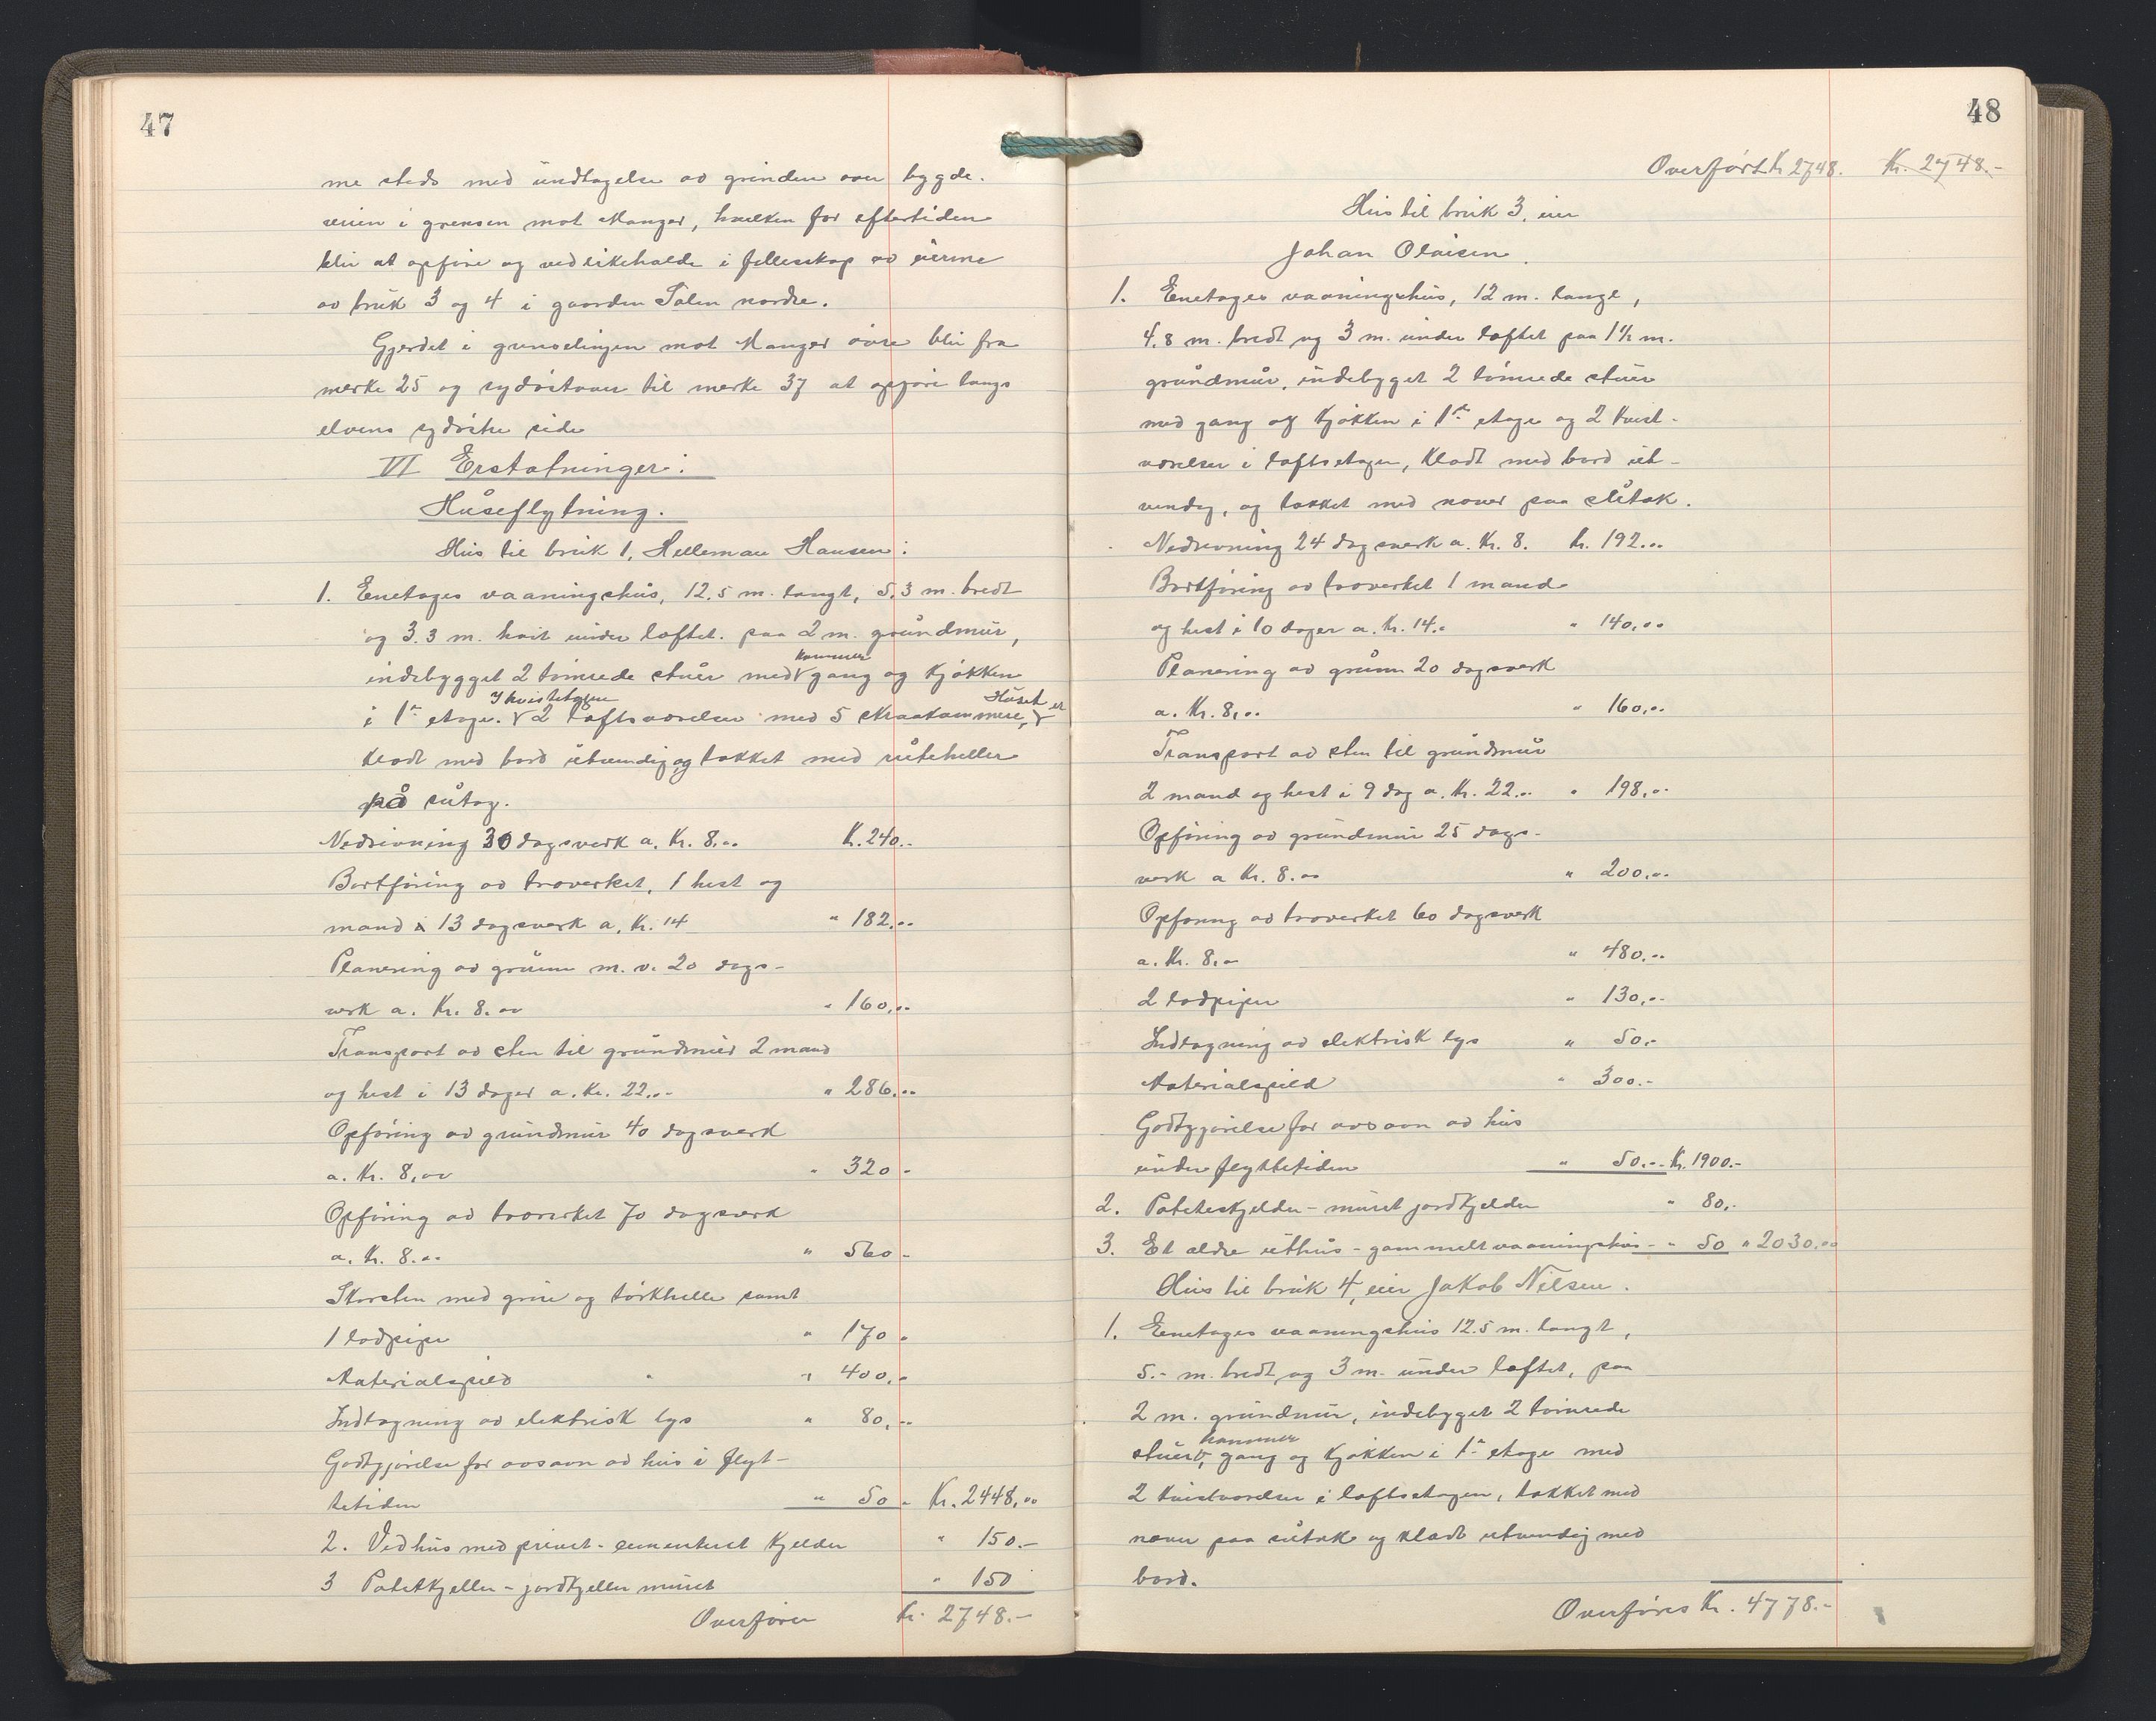 47
me steds med undtagelse av grinden over bygde-
veien i grensen mot Manger, hvilken for eftertiden
blir at opføre og vedlikeholde i fellesskap av eierne
av bruk 3 og 4 i gaarden Toleu nordre.
Gjerdet i grenselinjen mot Manger øvre blir fra
merke 25 og sydøstover til merke 37 at opføre langs
elvens sydøstre side
VI Erstatninger:
Huseflytning.
Hus til bruk 1, Helleman Hansen:
1. Enetages vaaningshus, 12.5 m. langt, 5.3 m. bredt
og 3.3 m. høit under loftet. paa 2 m. grundmur,
kammer
indebygget 2 tømrede stuer med gang og kjøkken
I kvistetagen Huset er
i 1ste etage. 2 loftsværelser med 5 skraakammere,
klædt med bord utvendig og takket med rutheller
på sutag.
Nedrivning 30 dagsverk a. Kr. 8.00 Kr. 240.-
Bortføring av træverket, 1 hest og
mand i 13 dagsverk a. Kr. 14 " 182.00
Planering av grunn m.v. 20 dags-
verk a. Kr. 8.00 " 160.00
Transport av sten til grundmur 2 mand
og hest i 13 dager a. Kr. 22.00 " 286.00
Opføring av grundmur 40 dagsverk
a. Kr. 8.00 " 320 -
Opføring av træverket 70 dagsverk
a. Kr. 8.00 " 560 -
Skorsten med grue og tørkhelle samt
1 lodpipe " 170 -
Materialspild " " 400.-
Indtagning av elektrisk lys " 80.00
Godtgjørelse for avsavn av hus i flyt-
tetiden " 50 - Kr. 2448.00
2. Vedhus med privet - sementeret kjelder " 150.-
3 Potetkjeller - jordkjeller muret " 150
Overføres Kr. 2748.-
48
Overført Kr 2748. Kr. 2748.-
Hus til bruk 3, eier
Johan Olaisen.
1. Enetages vaaningshus, 12 m. langt,
4.8 m. bredt og 3 m. under loftet paa 1 1/2 m.
grundmur, indebygget 2 tømrede stuer
med gang og kjøkken i 1ste etage og 2 kvist-
værelser i loftsetagen, klædt med bord ut-
vendig, og takket med næver paa sutak.
Nedrivning 24 dagsverk a. Kr. 8. Kr. 192.00
Bortføring av træverket 1 mand
og hest i 10 dager a. Kr. 14.- " 140.00
Planering av grunn 20 dagsverk
a. Kr. 8.00 " 160.00
Transport av sten til grundmur
2 mand og hest i 9 dag a. Kr. 22.00 " 198.00
Opføring av grundmur 25 dags-
verk a Kr. 8.00 " 200.00
Opføring av træverket 60 dagsverk
a. Kr. 8.00 " 480.00
2 lodpiper " 130.00
Indtagning av elektrisk lys " 50.-
Materialspild " 300.-
Godtgjørelse for avsavn av hus
under flyttetiden " 50.00 Kr. 1900.-
2. Poteteskjelder - muret jordkjelder " 80.-
3. Et ældre uthus - gammelt vaaningshus - " 50 " 2030.00
Hus til bruk 4, eier Jakob Nilsen.
1. Enetages vaaningshus 12.5 m. langt,
5.- m. bredt og 3 m. under loftet, paa
2 m. grundmur, indebygget 2 tømrede
kammer
stuer, gang og kjøkken i 1ste etage med
2 kvistværelser i loftsetagen, takket med
næver paa sutak og klædt utvendig med
bord.
Overføres Kr. 4778.-